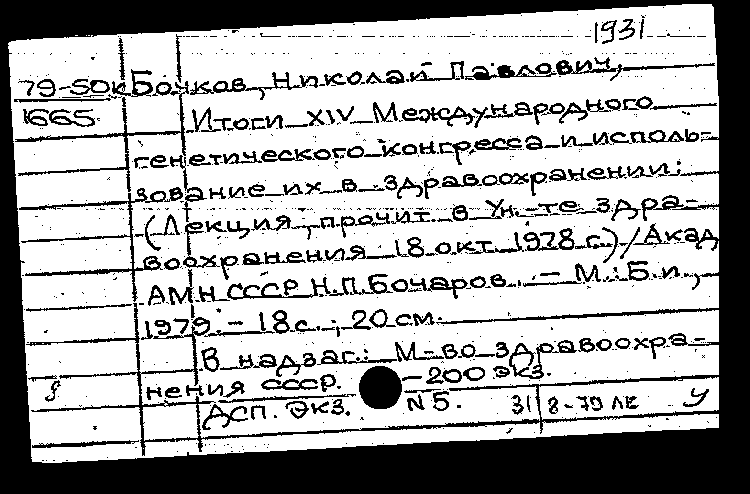 1931
79-50к Бочков, Николай Павлович,
1665 Итоги XIV Международного
генетического конгресса и исполь-
зование их в здравоохранении:
(Лекция, прочит. в Ун.-те здра-
воохранения 18 окт. 1978 г.) / Акад
АМН СССР Н.П.Бочаров. - М.: Б.и.,
1979. - 18 с.; 20 см.
В надзаг.: М-во здравоохра-
нения СССР. - 200 экз.
ДСП. Экз. N 5. 31 8-79 ЛЕ У